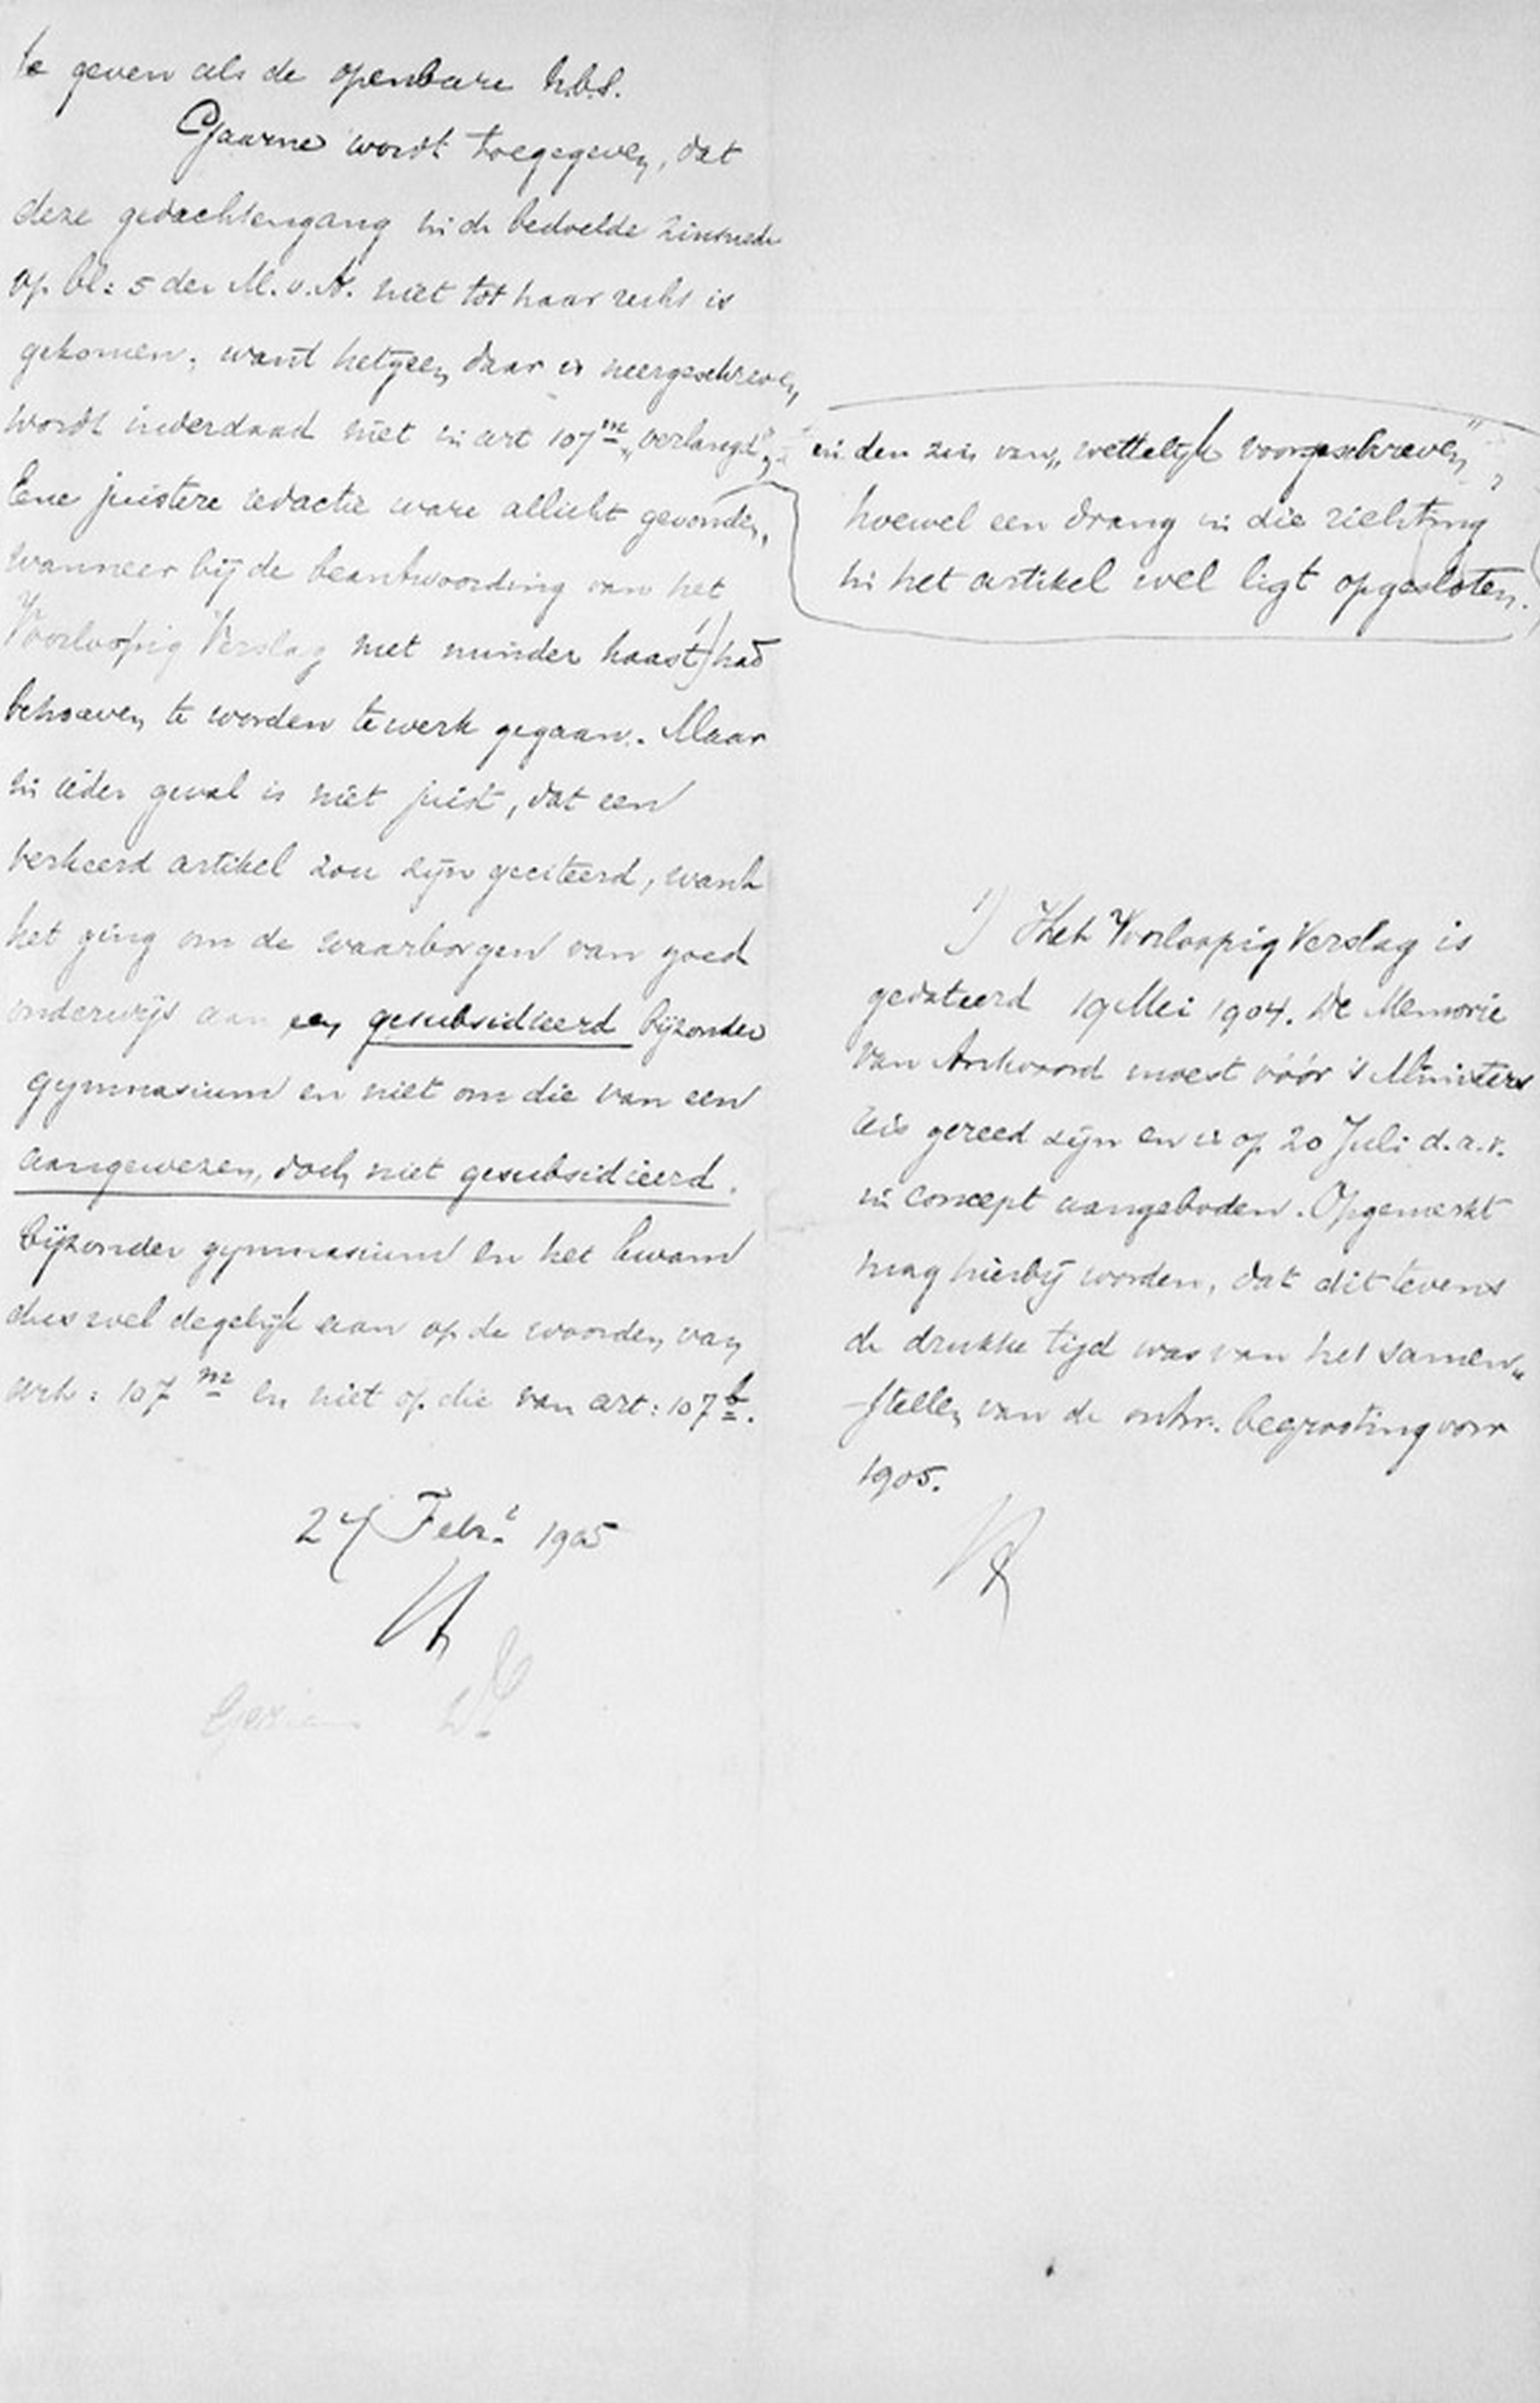 te geven als de openbare h.b.s.
Gaarne wordt toegegeven, dat
deze gedachtengang in de bedoelde zinsnede
op bl: 5 der M.v.A. niet tot haar recht is
gekomen; want hetgeen daar is neergeschreven,
wordt inderdaad niet in art 107m „verlangd",
Eene juistere redactie ware allicht gevonden,
wanneer bij de beantwoording van het
Voorloopig Verslag met minder haast 1) had
behoeven te worden te werk gegaan. Maar
in ieder geval is niet juist, dat een
verkeerd artikel zou zijn geciteerd, want
het ging om de waarborgen van goed
onderwijs aan een gesubsidieerd bijzonder
gymnasium en niet om die van een
aangewezen, doch niet gesubsidieerd.
bijzonder gymnasium en het kwam
dus wel degelijk aan op de woorden van
art: 107 m en niet op die van art: 107 b.
24 Febr. 1905
Gezien
in den zin van „wettelijk voorgeschreven",
hoewel een drang in die richting
in het artikel wel ligt opgesloten.
1) Het Voorloopig Verslag is
gedateerd 19 Mei 1904. De Memorie
van Antwoord moest vóór 's Ministers
reis gereed zijn en is op 20 Juli d.a.v.
in concept aangeboden. Opgemerkt
mag hierbij worden, dat dit tevens
de drukke tijd was van het samen„
stellen van de ontw. begrooting voor
1905.